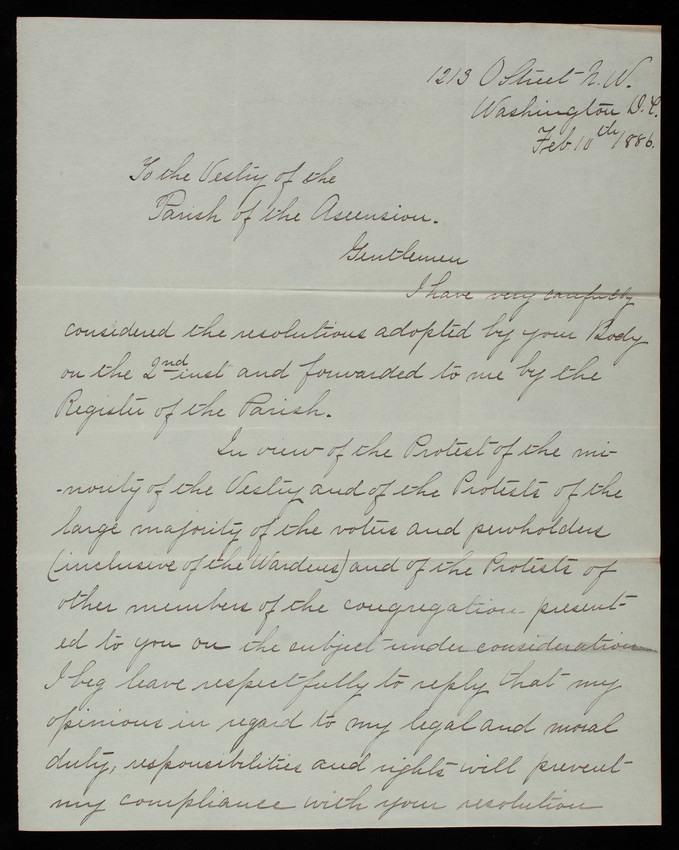 1213 O Street N.W.
Washington D.C.
Feb. 10th 1886.
To the Vestry of the
Parish of the Ascension.
Gentlemen
I have very carefully
considered the resolutions adopted by your Body
on the 2nd inst and forwarded to me by the
Register of the Parish.
In view of the Protest of the mi-
-nority of the Vestry and of the Protests of the
large majority of the voters and pewholders
(inclusive of the Wardens) and of the Protests of
other members of the congregation present-
ed to you on the subject under consideration
I beg leave respectfully to reply that my
opinions in regard to my legal and moral
duty, responsibilities and rights will prevent
my compliance with your resolution